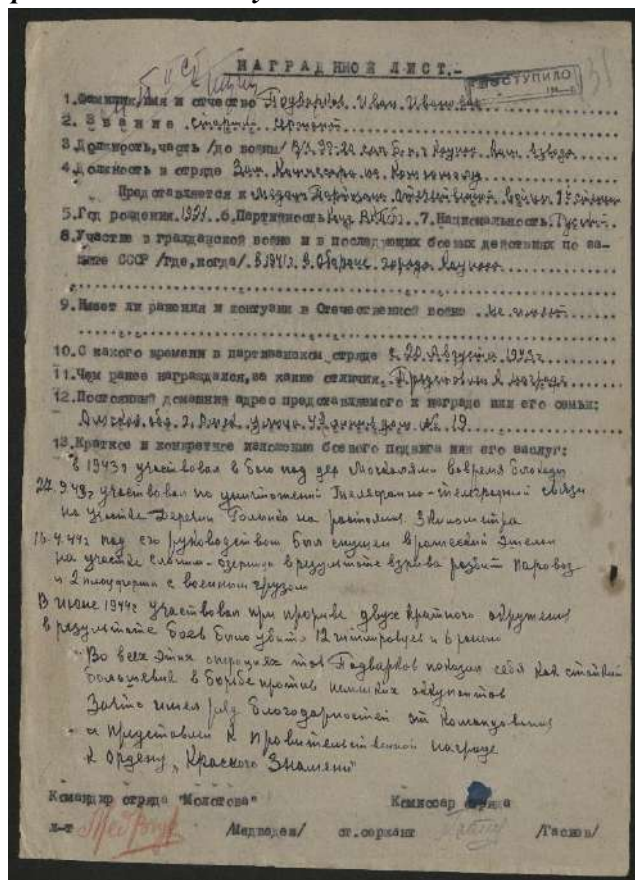 НАГРАДНОЙ ЛИСТ.-
ПОСТУПИЛО
1.Фамилия,имя и отчество Подварков Иван Иванович
2. Звание старший сержант
3.Должность,часть /до войны/
4.Должность в отряде Зам. Комиссара по Комсомолу
Представляется к Медали Партизану Отечественной войны
5.Год рождения.1921..6.Партийность ВЛКСМ..7.Национальность.Русский
8.Участие в гражданской войне и в последующих боевых действиях по за-
щите СССР /где,когда/.в 1941г. в Обороне города Каунаса
9.Имеет ли ранения и контузии в Отечественной войне ..не имеет
10.С какого времени в партизанском отряде с 20 Августа 1943г
11.Чем ранее награждался,за какие отличия.
12.Постоянный домашний адрес представляемого к награде или его семьи:
Омская обл. г. улица дом № 19
13.Краткое и конкретное изложение боевого подвига или его заслуг:
в 1943г участвовал в бою под дер вовремя блокады
27.9.43г участвовал по уничтожений телефанно-телеграфной связи
на участке Деревни Голынка на растоянии 3 километра
16.4.44г под его руководством был спущен вражеский эшелон
на участке Слоним-Озерница в результате взрыва разбит паровоз
и 2 платформы с военным грузом
В июне 1944г участвовал при прорыве двух кратного окружения
в результате боев было убито 12 гитлеровцев и 6 ранено
Во всех этих операциях тов Подварков показал себя как стойкий
большевик в борьбе против немецких оккупантов
За что имел ряд благодарностей от командования
и представлен к правительственной награде
к Ордену „Красного Знамени"
Командир отряда "Молотова" Комиссар отряда
л-т /Медведев/ ст.сержант